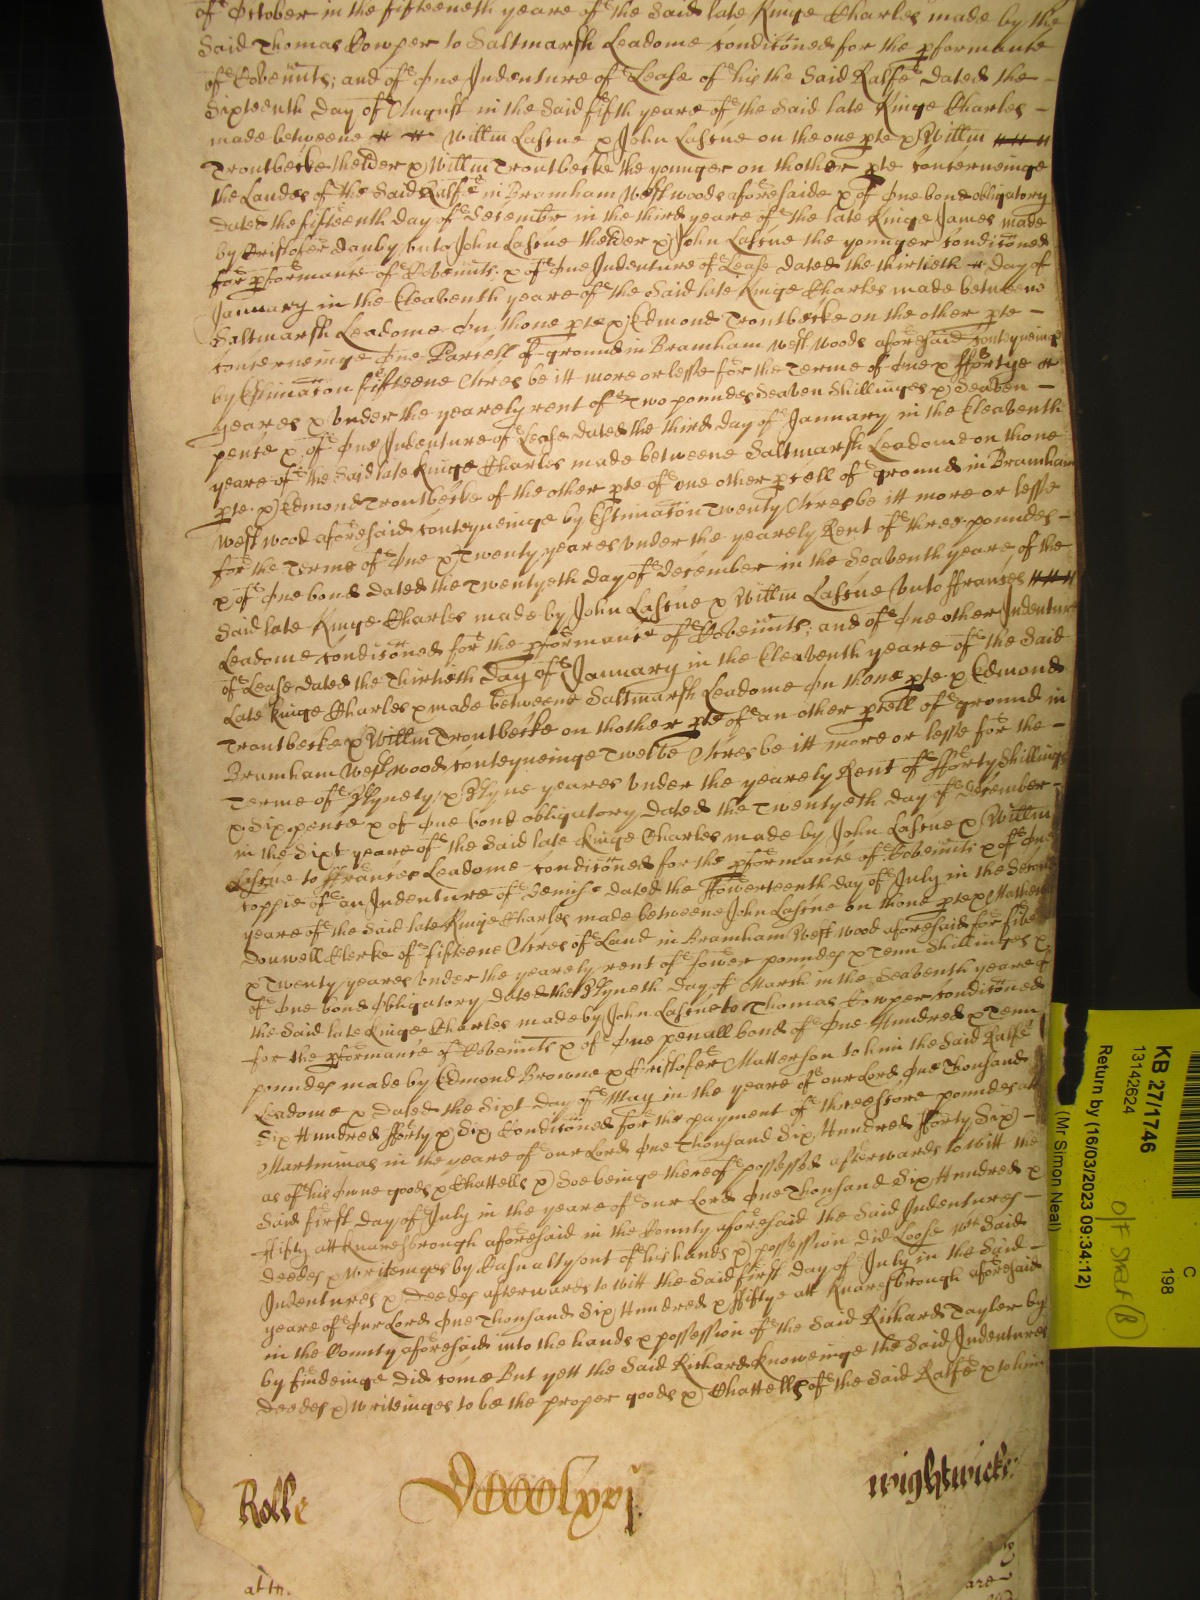 of October in the fifteeneth yeare of the said late Kinge Charles made by the
said Thomas Cowper to Saltmarsh Leadome condiconed for the pformance
of Covenñts; and of One Indenture of Lease of his the said Ralfe dated the -
Sixteenth day of August in the said fifth yeare of the said late Kinge Charles -
made betweene Willm Lascne & John Lascne on the one pte & Willm
Trontbecke thelder & Willm Trontbecke the younger on thother pte conterneinge
the Landes of the said Ralfe in Bramham West woods aforesaide & of One bond obligatory
dated the fifteenth day of December in the third yeare of the late Kinge James made
by Cristofer Danby unto John Lascne thelder & John Lascne the younger condiconed
for pformance of Covenñts. & of One Indenture of Lease dated the thirtieth day of
January in the Eleaventh yeare of the said late Kinge Charles made betweene
Saltmarsh Leadome On thone pte & Edmond Trontbecke on the other pte -
conterneinge One Parcell of ground in Bramham West woods aforesaid conteyneinge
by Estimacon fifteene Acres be itt more or lesse for the Terme of One & ffortye
yeares & under the yearely rent of Two poundes Seaven Shillinges & Seaven -
pence & of One Indenture of Lease dated the third day of January in the Eleaventh
yeare of the said late Kinge Charles made betweene Saltmarsh Leadome on thone
pte & Edmond Trontbecke of the other pte of one other pcell of ground in Bramham
West wood aforesaid conteyneinge by Estimacon Twenty Acres be itt more or lesse
for the Terme of One & Twenty yeares under the yearely Rent of three poundes -
& of One bond dated the Twentyeth day of December in the Seaventh yeare of the
said late Kinge Charles made by John Lascne & Willm Lascne unto ffrances
Leadome condiconed for the pformance of Covenñts; and of One other Indenture
of Lease dated the Thirtieth day of January in the Eleaventh yeare of the said
Late Kinge Charles & made betweene Saltmarsh Leadome On thone pte & Edmond
Trontbecke & Willm Trontbecke on thother pte of an other pcell of ground in
Bramham West woods conteyneinge Twelve Acres be itt more or lesse for the -
Terme of Nynety & Nyne yeares under the yearely Rent of fforty Shillings
& Six pence & of One bond obligatory dated the Twentyeth day of December -
in the Sixt yeare of the said late Kinge Charles made by John Lascne & Willm
Lascne to ffrances Leadome condiconed for the pformance of Covenñts & of One
coppie of an Indenture of Demise dated the ffowerteenth day of July in the Second
yeare of the said late Kinge Charles made betweene John Lascne on thone pte & Mathew
Donwell Clerke of fifteene Acres of Land in Bramham West wood aforesaid for five
& Twenty yeares under the yearely rent of fower poundes & Tenn Shillinges &
of One bond Obligatory dated the Nyneth day of March in the Seaventh yeare of
the said late Kinge Charles made by John Lascne to Thomas Cowper condiconed
for the pformance of Covenñts & of One penall bond of One Hundred & Tenn
poundes made by Edmond Browne & Cristofer Matterson to him the said Ralfe
Leadome & dated the Sixt day of May in the yeare of our Lord One Thousand
Six Hundred fforty & Six Condiconed for the payment of threescore poundes att
Martinmas in the yeare of our Lord One Thousand Six Hundred fforty Six) -
as of his Owne goodes & Chattells & Soe beinge thereof possessed afterwards to witt the
said first day of July in the yeare of our Lord One Thousand Six Hundred &
ffifty att Knaresbrough aforesaid in the County aforesaid the said Indentures -
deedes & writeinges by Casualty out of his hands & possession did Loose wch said
Indentures & deedes afterwards to witt the said first day of July in the said -
yeare of Our Lord One Thousand Six Hundred & ffiftye att Knaresbrough aforesaid
in the County aforesaid into the hands & possession of the said Richard Tayler by
findeinge did come But yett the said Richard knoweinge the said Indentures
deedes & writeinges to be the proper goods & Chattells of the said Ralfe & to him
Rolle wightwicke
KB 27/1746
13142624
Return by (16/03/2023 09:34:12)
(Mr Simon Neal)
C
198
O/F Shelf (B)